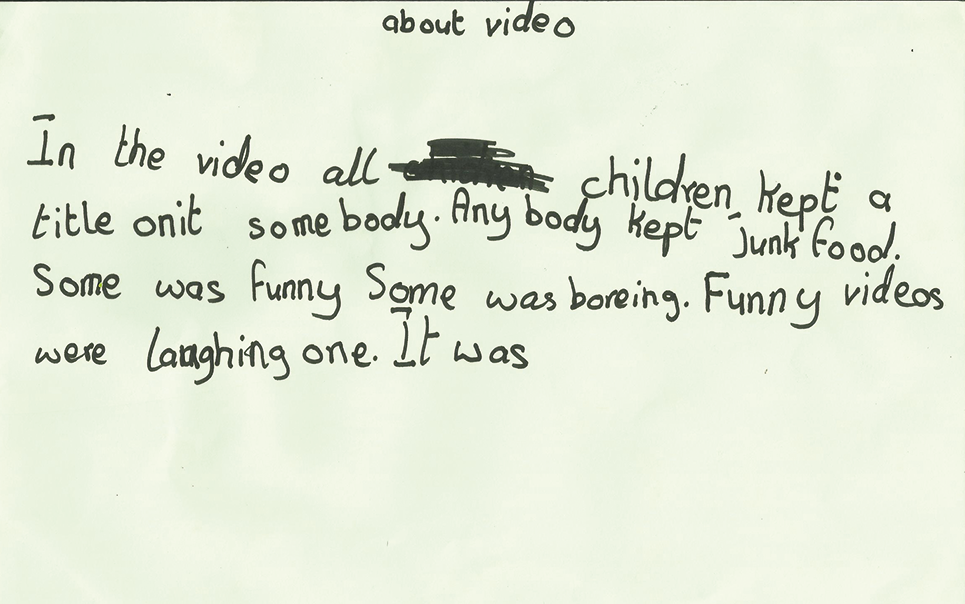 about video
In the video all children kept a
title onit some body. Any body kept junk food.
Some was funny Some was boreing. Funny videos
were laughing one. It was